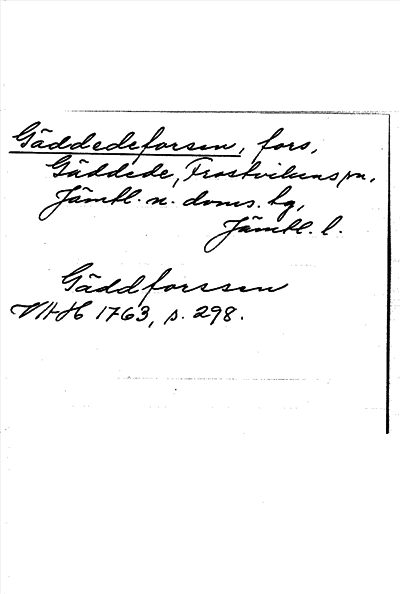 Gäddedeforsen, fors,
Gäddede, Frostvikens sn,
Jämtl. n. doms. hg,
Jämtl. l.
Gäddforssen
VHAH 1763, s. 298.